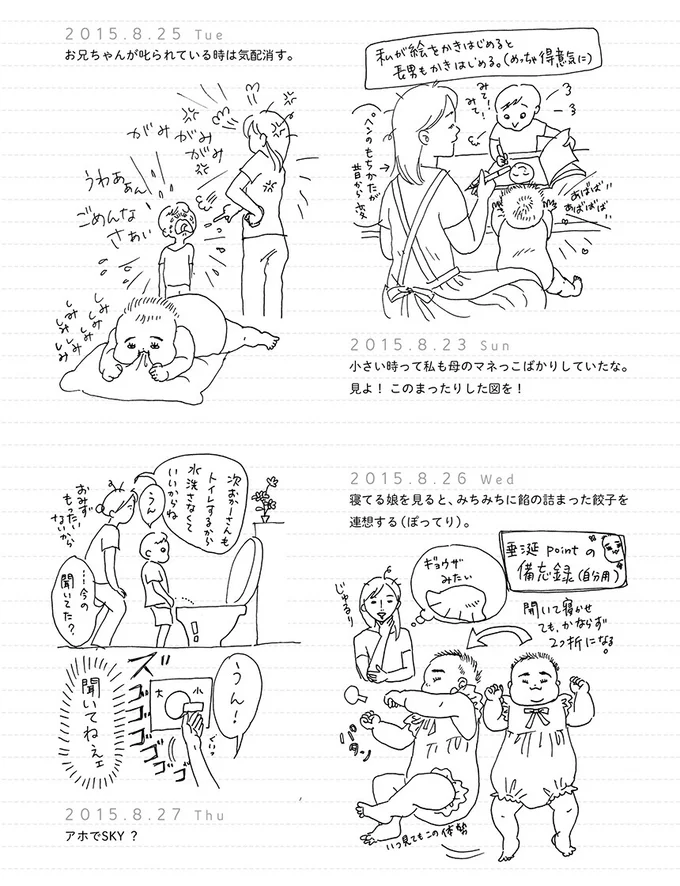 2015.8.25 Tue
お兄ちゃんが叱られている時は気配消す。
がみ
がみ
がみ
うわあぁん
ごめんな
さあい
しみ
しみ
しみ
しみ
しみ
しみ
私が絵をかきはじめると
長男もかきはじめる。(めっちゃ得意気に)
みて!
みて!
ペンのもちかたが
昔から変
あばばば!!
あばばば!!
2015.8.23 Sun
小さい時って私も母のマネっこばかりしていたな。
見よ! このまったりした図を!
次おかーさんも
トイレするから
水洗さなくて
いいからね
うん
おみず
もったい
ないから
…今の
聞いてた?
うん!
大 小
ぐいっ
ズゴゴゴゴゴゴ
聞いてねぇェ
2015.8.27 Thu
アホでSKY ?
2015.8.26 Wed
寝てる娘を見ると、みちみちに餡の詰まった餃子を
連想する(ぽってり)。
垂涎pointの
備忘録(自分用)
ギョウザ
みたい
じゅるり
開いて寝かせ
ても、かならず
2つ折になる。
パタン
いつ見てもこの体勢